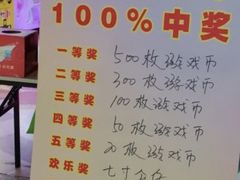 100%中奖
一等奖 500枚游戏币
二等奖 300枚游戏币
三等奖 100枚游戏币
四等奖 50枚游戏币
五等奖 20枚游戏币
欢乐奖